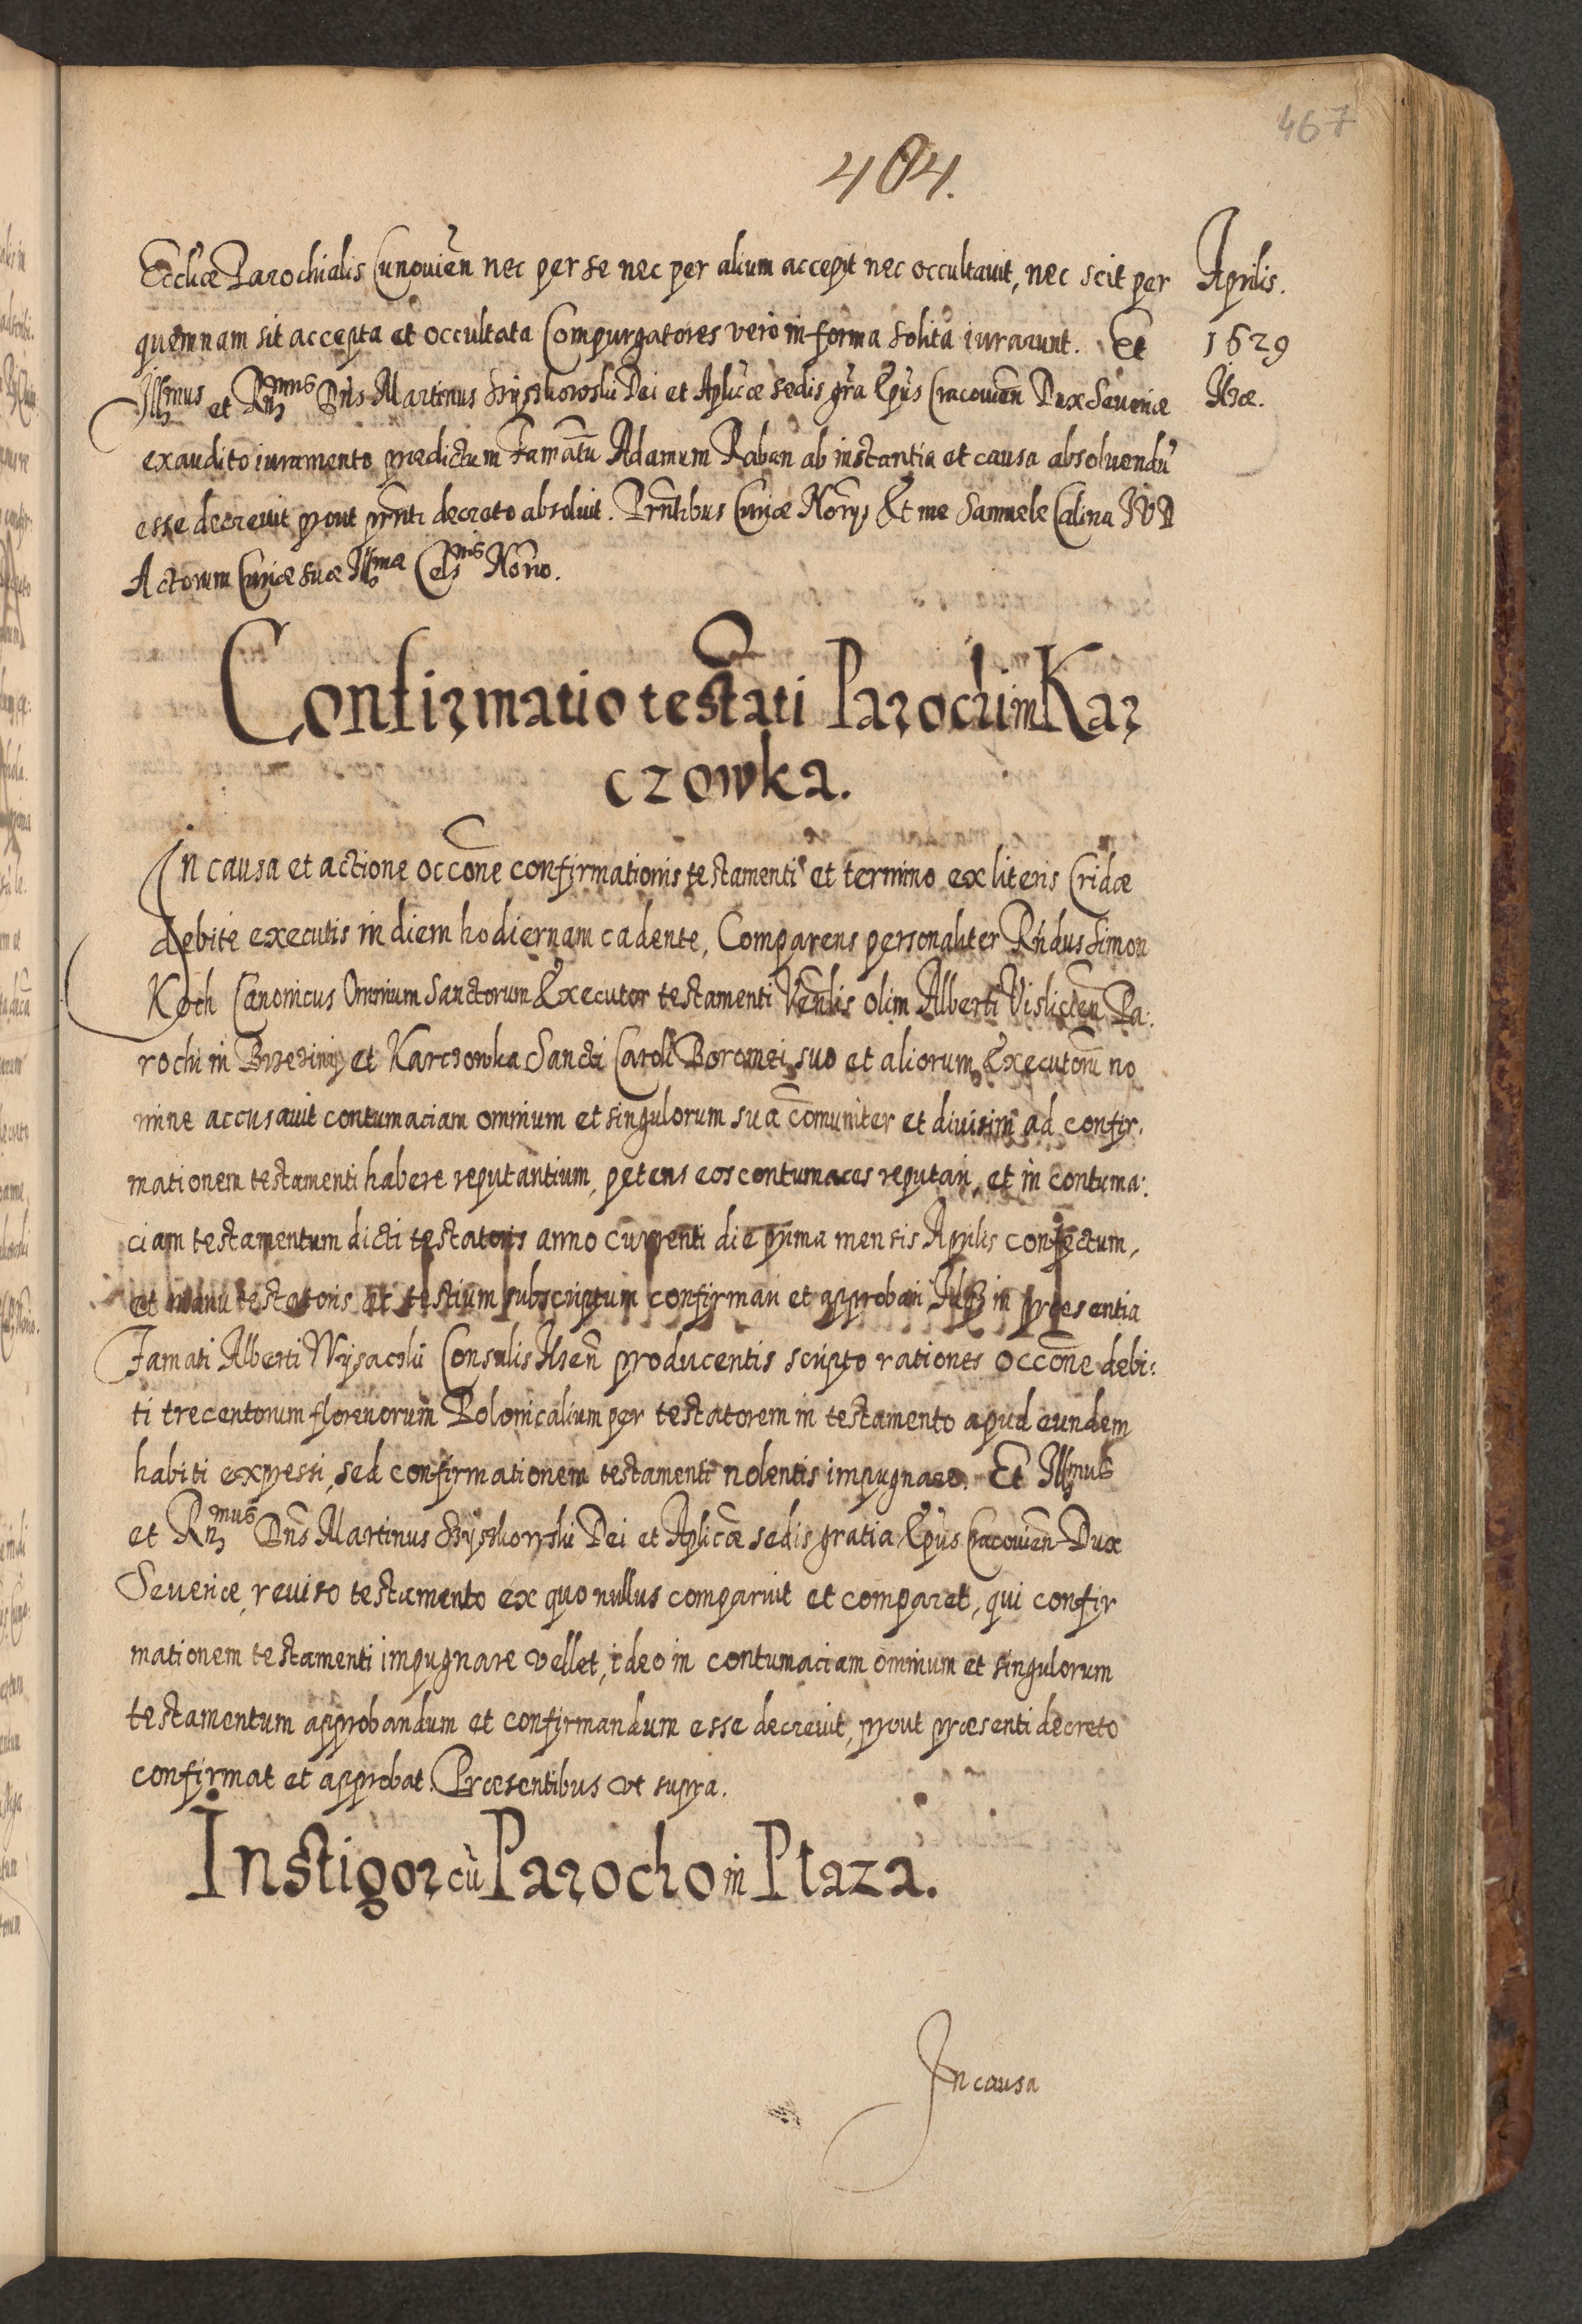 467
404.
Aprilis.
1629
Ilzæ.
Eccliæ Parochialis Cunovień nec per se nec per alium accepit nec occultavit, nec scit per
quemnam sit accepta et occultata Compurgatores vero in forma solita iurarunt. Et
Illmus et Rñmus Dñs Martinus Szyszkowski Dei et Aplicæ sedis gra Epus Cracovien Dux Severiæ
exaudito iuramento prædictum Famatu Adamum Raban ab instantia et causa absolvendu
esse decrevit prout prñti decreto absolvit. Prñtibus Curiæ Norijs Et me Samuele Calina IVD
Actorum Curiæ suæ Illmæ Celsnis Norio.
Confirmatio testati Parochi in Kar
czowka.
In causa et actione occõne confirmationis testamenti et termino ex literis Cridæ
debite executis in diem hodiernam cadente, Comparens personaliter Rñdus Simon
Koch Canonicus Omnium Sanctorum Executor testamenti Venlis olim Alberti Vislicień Pa:
rochi in Brzeziny et Karczowka Sancti Caroli Boromei, suo et aliorum Executoru no
mine accusavit contumaciam omnium et singulorum sua comuniter et divisim ad confir.
mationem testamenti habere reputantium, petens eos contumaces reputari, et in contuma:
ciam testamentum dicti testatoris anno currenti die prima mensis Aprilis confectum,
et manu testatoris et testium subscriptum confirmari et approbari, Idq3 in præsentia
Famati Alberti Wysacki Consulis Ilzeñ producentis scripto rationes occõne debi:
ti trecentorum florenorum Polonicalium per testatorem in testamento apud eundem
habiti expressi, sed confirmationem testamenti nolentis impugnare. Et Illmus
et Rñmus Dñs Martinus Szyszkowski Dei et Aplicæ sedis gratia Epus Cracovień Dux
Severiæ, reviso testamento ex quo nullus comparuit et comparet, qui confir
mationem testamenti impugnare vellet, ideo in contumaciam omnium et singulorum
testamentum approbandum et confirmandum esse decrevit, prout præsenti decreto
confirmat et approbat. Præsentibus vt supra.
Instigor cu Parocho in Plaza.
In causa